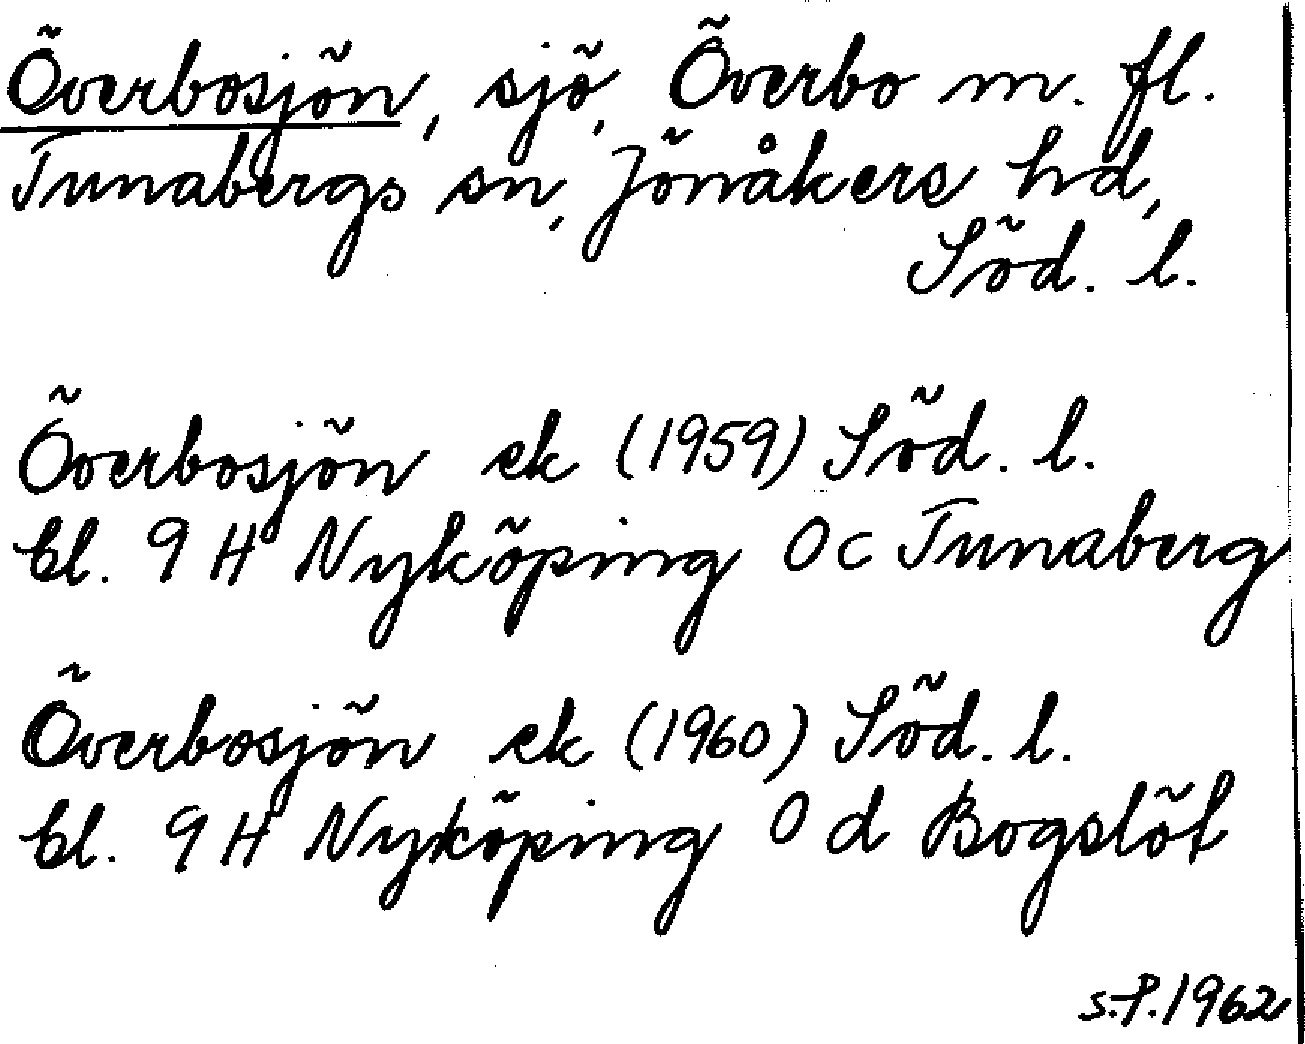 Överbosjön, sjö, Överbo m. fl.
Tunabergs sn, Jönåkers hd,
Söd. l.
Överbosjön ek (1959) Söd. l.
bl. 9 H Nyköping 0 c Tunaberg
Överbosjön ek (1960) Söd. l.
bl. 9 H Nyköping 0 d Bogslöt
S.P. 1962